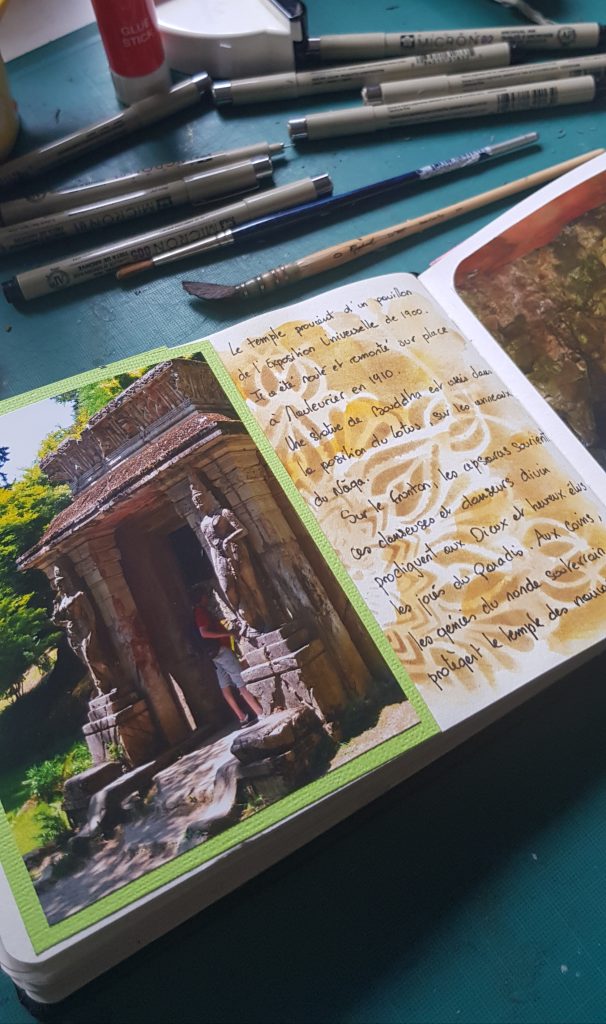 GLUE
STICK
MICRON 02
MICRON 01
MICRON 005
Le temple provient d'un pavillon
de l'Exposition Universelle de 1900.
Il a été et remonté sur place
à Maulevrier en 1910.
Une statue de Bouddha est assis dans
la position du lotus, sur les anneaux
du Nâga.
Sur le fronton, les apsaras sourient
ces danseuses et danseurs divin
prodiguent aux Dieux et heureux élus
les joies du Paradis. Aux coins,
les génies du monde souterrain
protègent le temple des